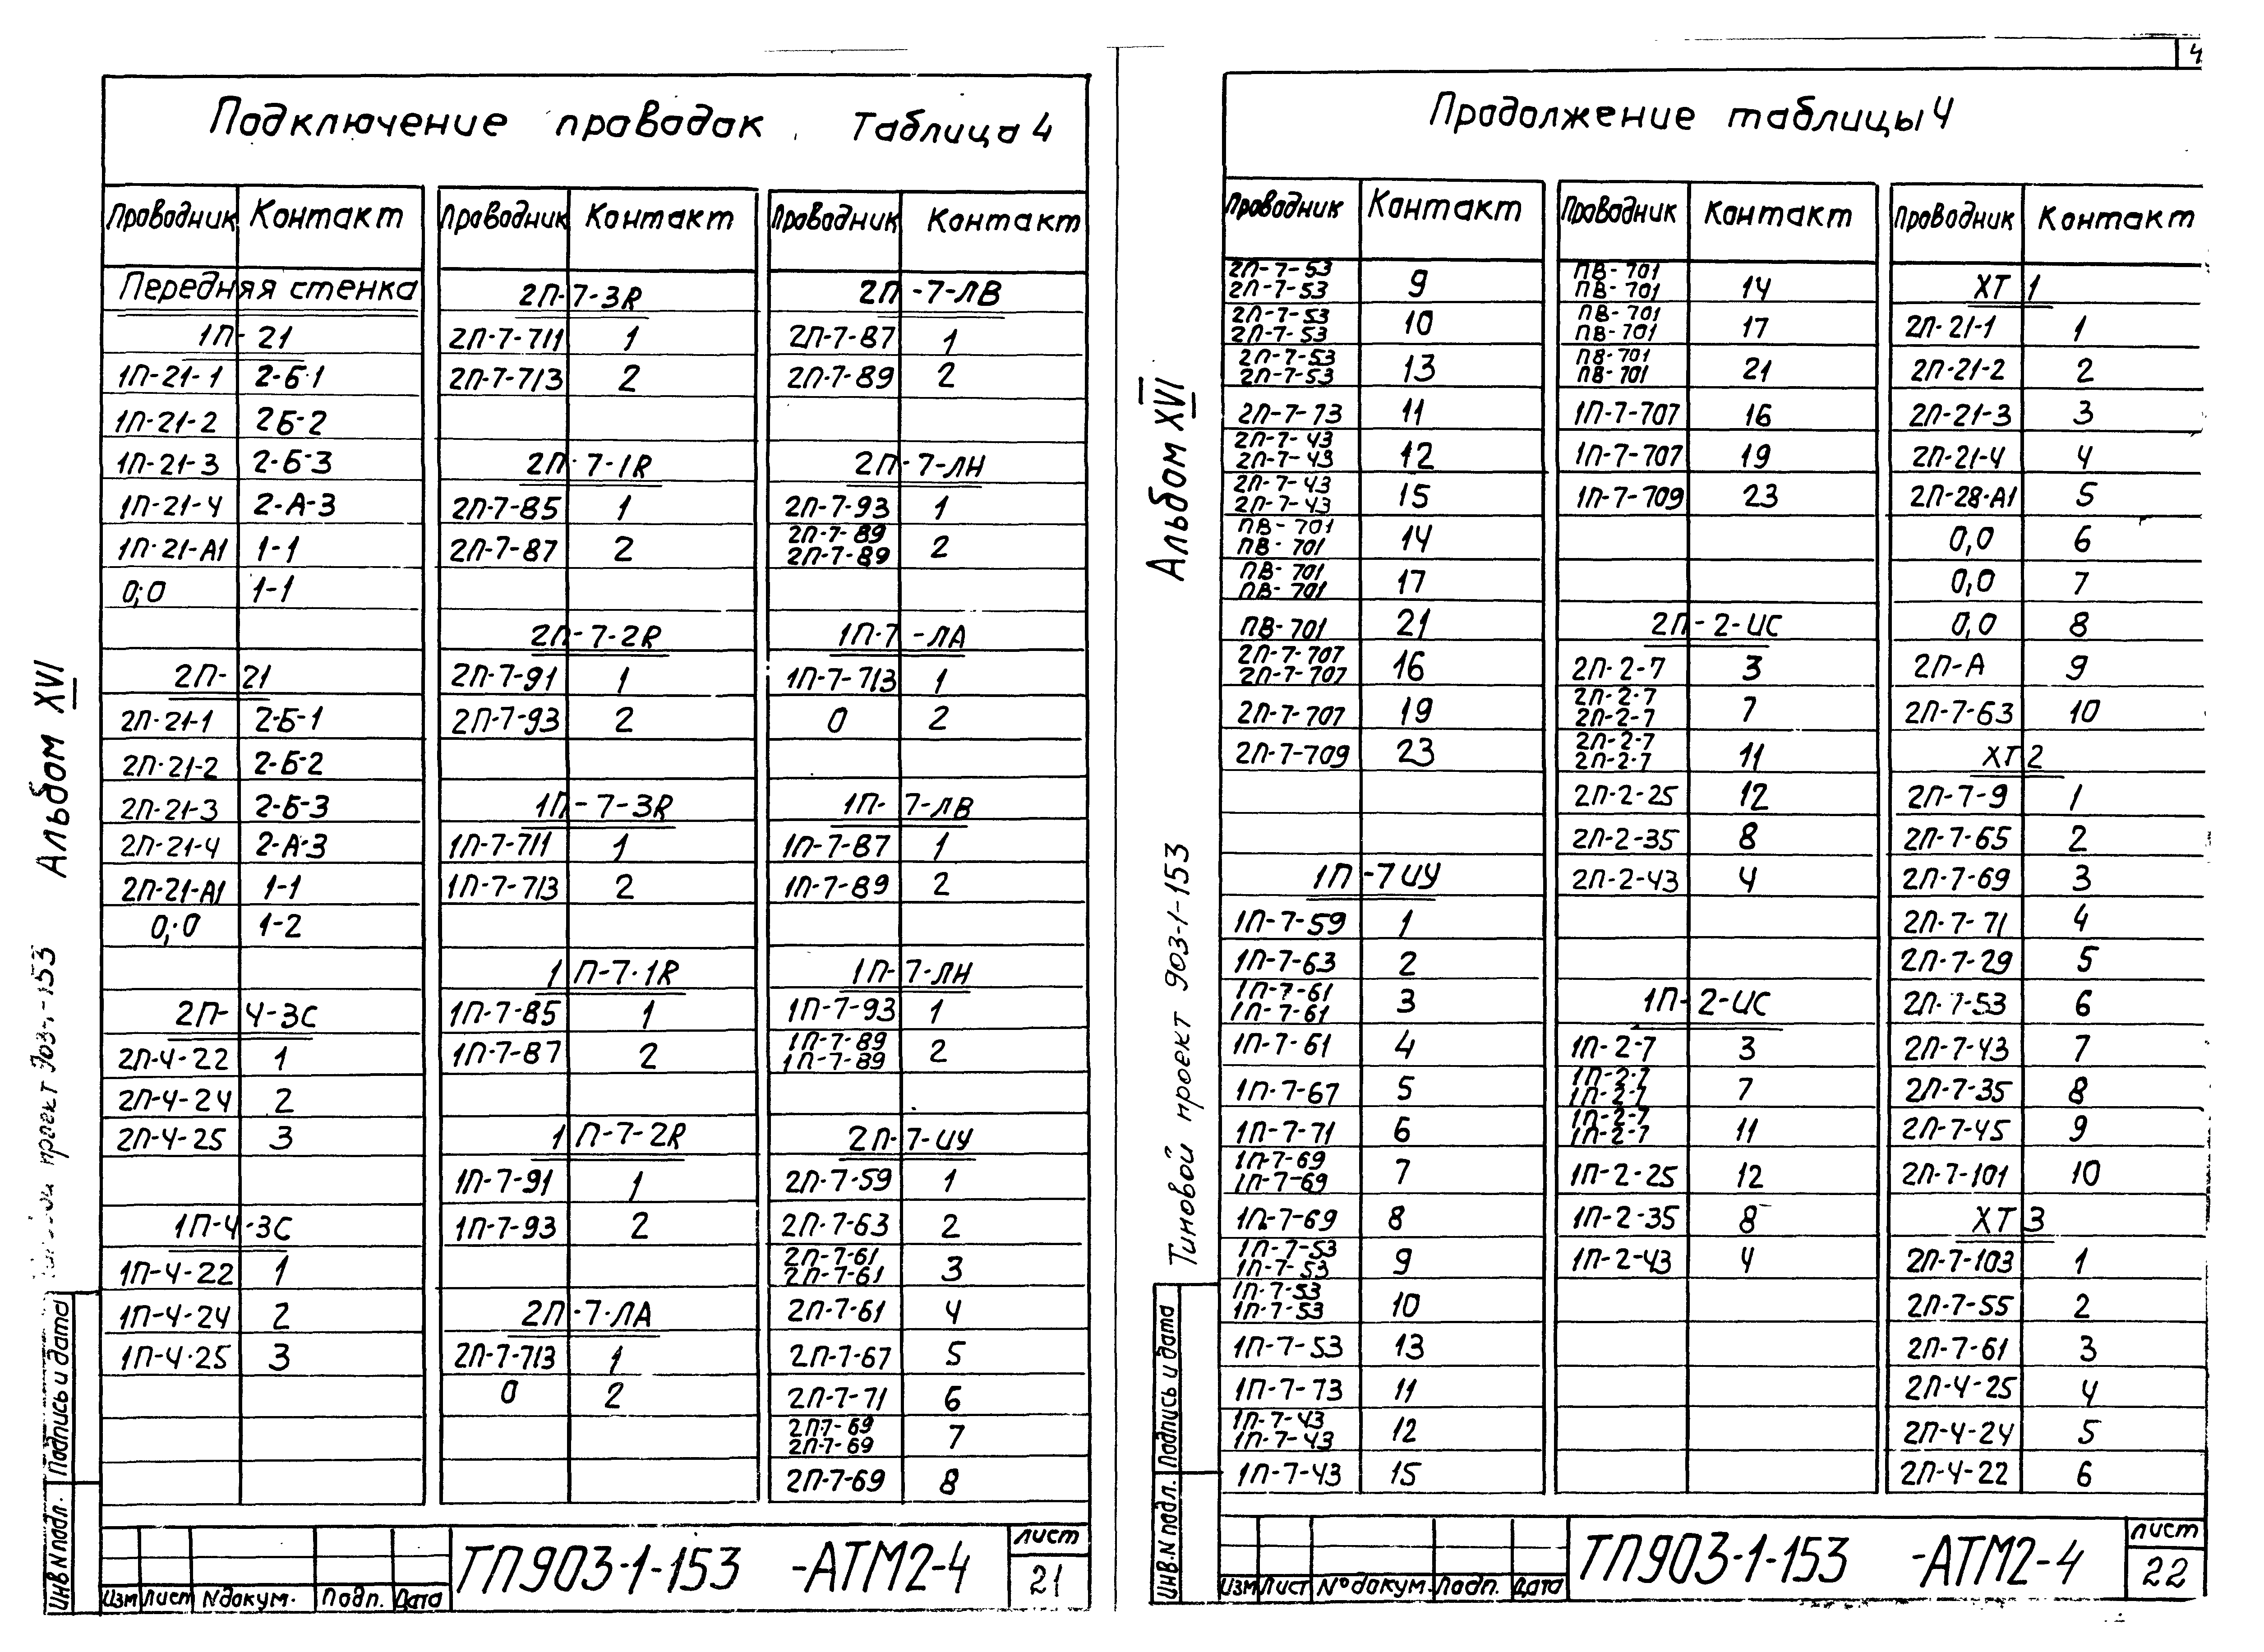 Подключение проводок Таблица 4
Проводник Контакт
Передняя стенка
1П-21
1П-21-1 2-Б-1
1П-21-2 2Б-2
1П-21-3 2-Б-3
1П-21-4 2-А-3
1П-21-А1 1-1
0;0 1-1
2П-21
2П-21-1 2-Б-1
2П-21-2 2-Б-2
2П-21-3 2-Б-3
2П-21-4 2-А-3
2П-21-А1 1-1
0;0 1-2
2П-4-3С
2П-4-22 1
2П-4-24 2
2П-4-25 3
1П-4-3С
1П-4-22 1
1П-4-24 2
1П-4-25 3
Проводник Контакт
2П-7-3R
2П-7-711 1
2П-7-713 2
2П-7-1R
2П-7-85 1
2П-7-87 2
2П-7-2R
2П-7-91 1
2П-7-93 2
1П-7-3R
1П-7-711 1
1П-7-713 2
1П-7-1R
1П-7-85 1
1П-7-87 2
1П-7-2R
1П-7-91 1
1П-7-93 2
2П-7-ЛА
2П-7-713 1
0 2
Проводник Контакт
2П-7-ЛВ
2П-7-87 1
2П-7-89 2
2П-7-ЛН
2П-7-93 1
2П-7-89
2П-7-89 2
1П-7-ЛА
1П-7-713 1
0 2
1П-7-ЛВ
1П-7-87 1
1П-7-89 2
1П-7-ЛН
1П-7-93 1
1П-7-89
1П-7-89 2
2П-7-ИУ
2П-7-59 1
2П-7-63 2
2П-7-61
2П-7-61 3
2П-7-61 4
2П-7-67 5
2П-7-71 6
2П7-69
2П-7-69 7
2П-7-69 8
Альбом XVI
проект 903-1-153
Подпись и дата
Инв.N подл.
Изм Лист N докум. Подп. Дата
ТП903-1-153 -АТМ2-4
Лист
21
4
Продолжение таблицы 4
Проводник Контакт
2П-7-53
2П-7-53 9
2П-7-53
2П-7-53 10
2П-7-53
2П-7-53 13
2П-7-73 11
2П-7-43
2П-7-43 12
2П-7-43
2П-7-43 15
ПВ-701
ПВ-701 14
ПВ-701
ПВ-701 17
ПВ-701 21
2П-7-707
2П-7-707 16
2П-7-707 19
2П-7-709 23
1П-7ИУ
1П-7-59 1
1П-7-63 2
1П-7-61
1П-7-61 3
1П-7-61 4
1П-7-67 5
1П-7-71 6
1П-7-69
1П-7-69 7
1П-7-69 8
1П-7-53
1П-7-53 9
1П-7-53
1П-7-53 10
1П-7-53 13
1П-7-73 11
1П-7-43
1П-7-43 12
1П-7-43 15
Проводник Контакт
ПВ-701
ПВ-701 14
ПВ-701
ПВ-701 17
ПВ-701
ПВ-701 21
1П-7-707 16
1П-7-707 19
1П-7-709 23
2П-2-ИС
2П-2-7 3
2П-2-7
2П-2-7 7
2П-2-7
2П-2-7 11
2П-2-25 12
2П-2-35 8
2П-2-43 4
1П-2-ИС
1П-2-7 3
1П-2-7
1П-2-7 7
1П-2-7
1П-2-7 11
1П-2-25 12
1П-2-35 8
1П-2-43 4
Проводник Контакт
ХТ 1
2П-21-1 1
2П-21-2 2
2П-21-3 3
2П-21-4 4
2П-28-А1 5
0,0 6
0,0 7
0,0 8
2П-А 9
2П-7-63 10
ХТ 2
2П-7-9 1
2П-7-65 2
2П-7-69 3
2П-7-71 4
2П-7-29 5
2П-7-53 6
2П-7-43 7
2П-7-35 8
2П-7-45 9
2П-7-101 10
ХТ 3
2П-7-103 1
2П-7-55 2
2П-7-61 3
2П-4-25 4
2П-4-24 5
2П-4-22 6
Альбом XVI
Типовой проект 903-1-153
Подпись и дата
Инв.N подл.
Изм Лист № докум. Подп. Дата
ТП903-1-153 -АТМ2-4
Лист
22